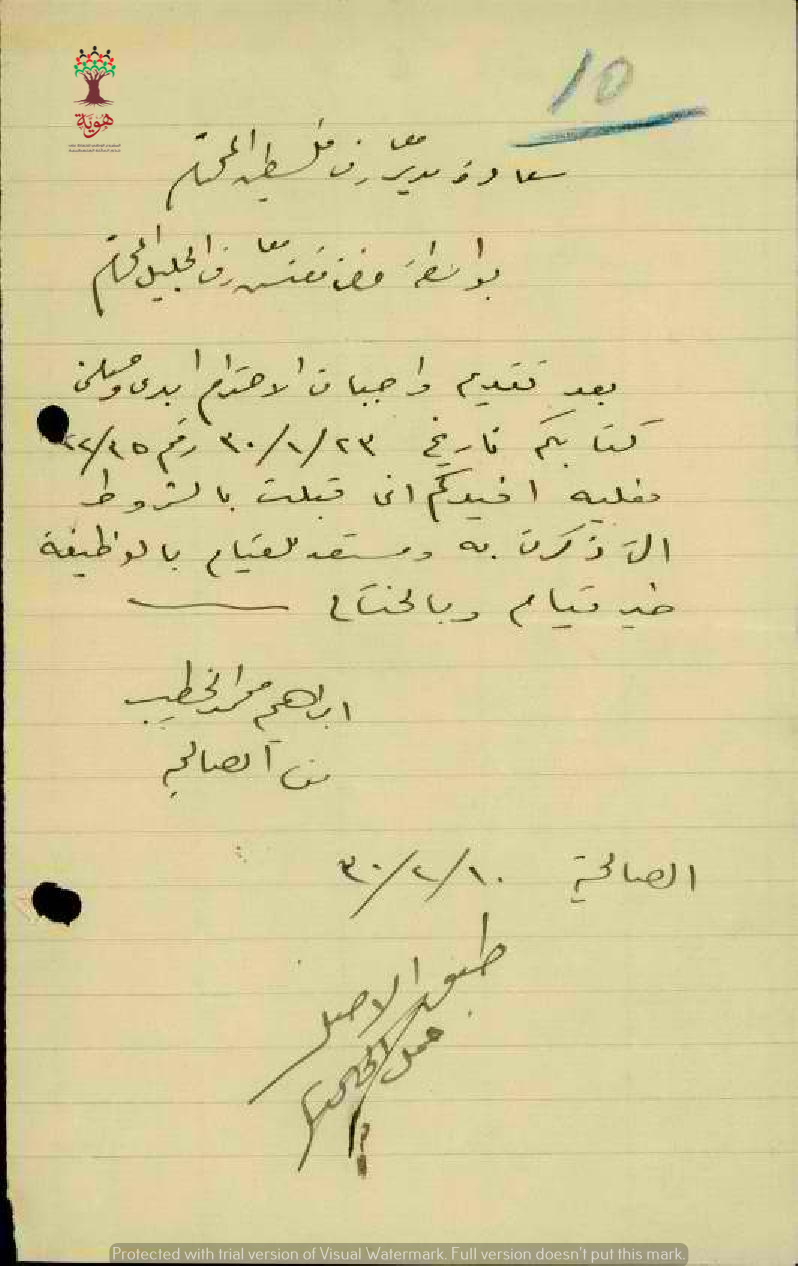 10
هوية
سعادة مدير معارف فلسطين المحترم
بواسطة حضرة مفتش معارف الجليل المحترم
بعد تقديم واجبات الاحترام ابدى وصلنى
كتابكم تاريخ ٢٣/١/٣٠ رقم
فعليه افيدكم انى قبلت بالشروط
التى ذكرت به ومستعد للقيام بالوظيفة
خير قيام وبالختام
ابراهيم محمد الخطيب
من الصالحية
الصالحية ١٠/٢/٣٠
طبق الاصل
Protected with trial version of Visual Watermark. Full version doesn't put this mark.